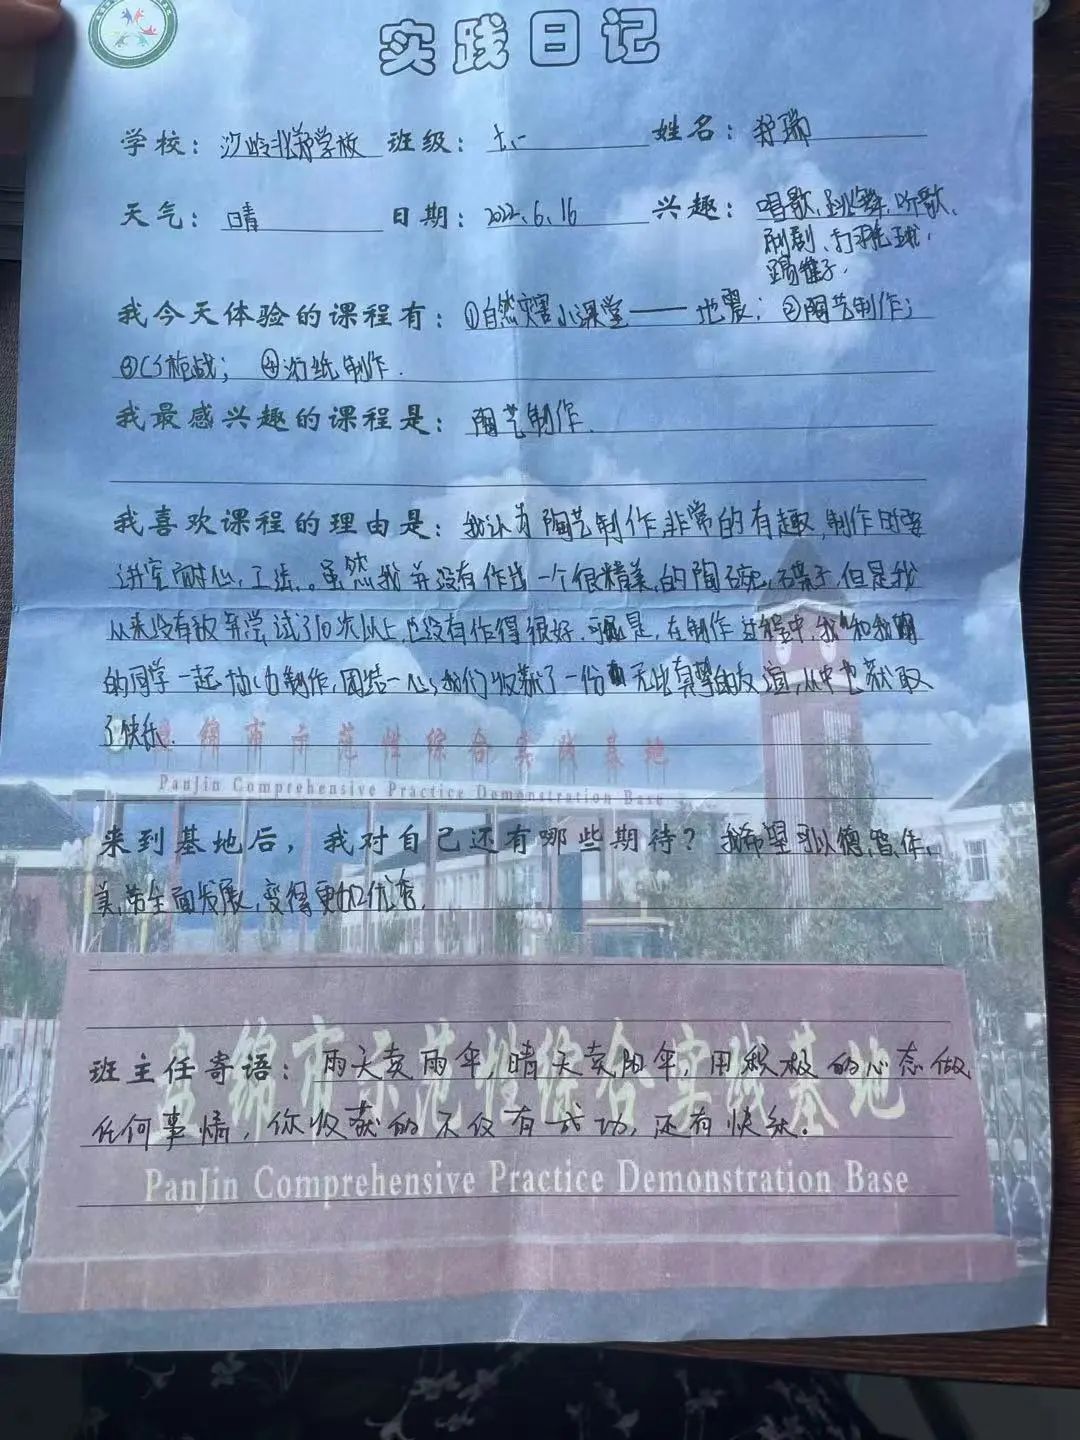 实践日记
学校：沙岭北郊学校 班级：七、一 姓名：瑞
天气：晴 日期：2022.6.16 兴趣：唱歌、跳舞、听歌、
刷剧、打羽毛球、
踢毽子.
我今天体验的课程有：①自然灾害小课堂——地震；②陶艺制作；
③CS枪战；④衍纸制作.
我最感兴趣的课程是：陶艺制作.
我喜欢课程的理由是：我认为陶艺制作非常的有趣,制作时要
讲究耐心,工法。虽然我并没有作出一个很精美的陶碗,碟子,但是我
从来没有放弃尝试了10次以上,也没有作得很好.可是,在制作过程中,我和我
的同学一起协力制作,团结一心,我们收获了一份无比真挚的友谊,从中也获取
了快乐.
盘锦市示范性综合实践基地
PanJin Comprehensive Practice Demonstration Base
来到基地后，我对自己还有哪些期待？我希望可以德,智,体,
美,劳全面发展,变得更加优秀.
盘锦市示范性综合实践基地
班主任寄语：雨天卖雨伞,晴天卖阳伞,用积极的心态做
任何事情,你收获的不仅有成功,还有快乐.
PanJin Comprehensive Practice Demonstration Base